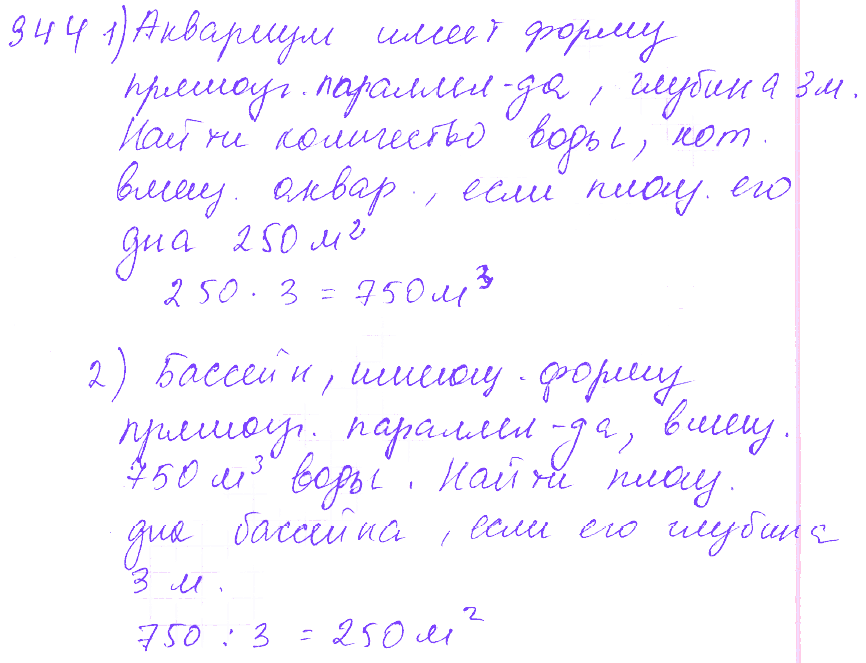 344 1) Аквариум имеет форму
прямоуг. параллел-да, глубина 3 м.
Найти количество воды, кот.
вмещ. аквар., если площ. его
дна 250 м²
250 · 3 = 750 м³
2) Бассейн, имеющ. форму
прямоуг. параллел-да, вмещ.
750 м³ воды. Найти площ.
дна бассейна, если его глубина
3 м.
750 : 3 = 250 м²